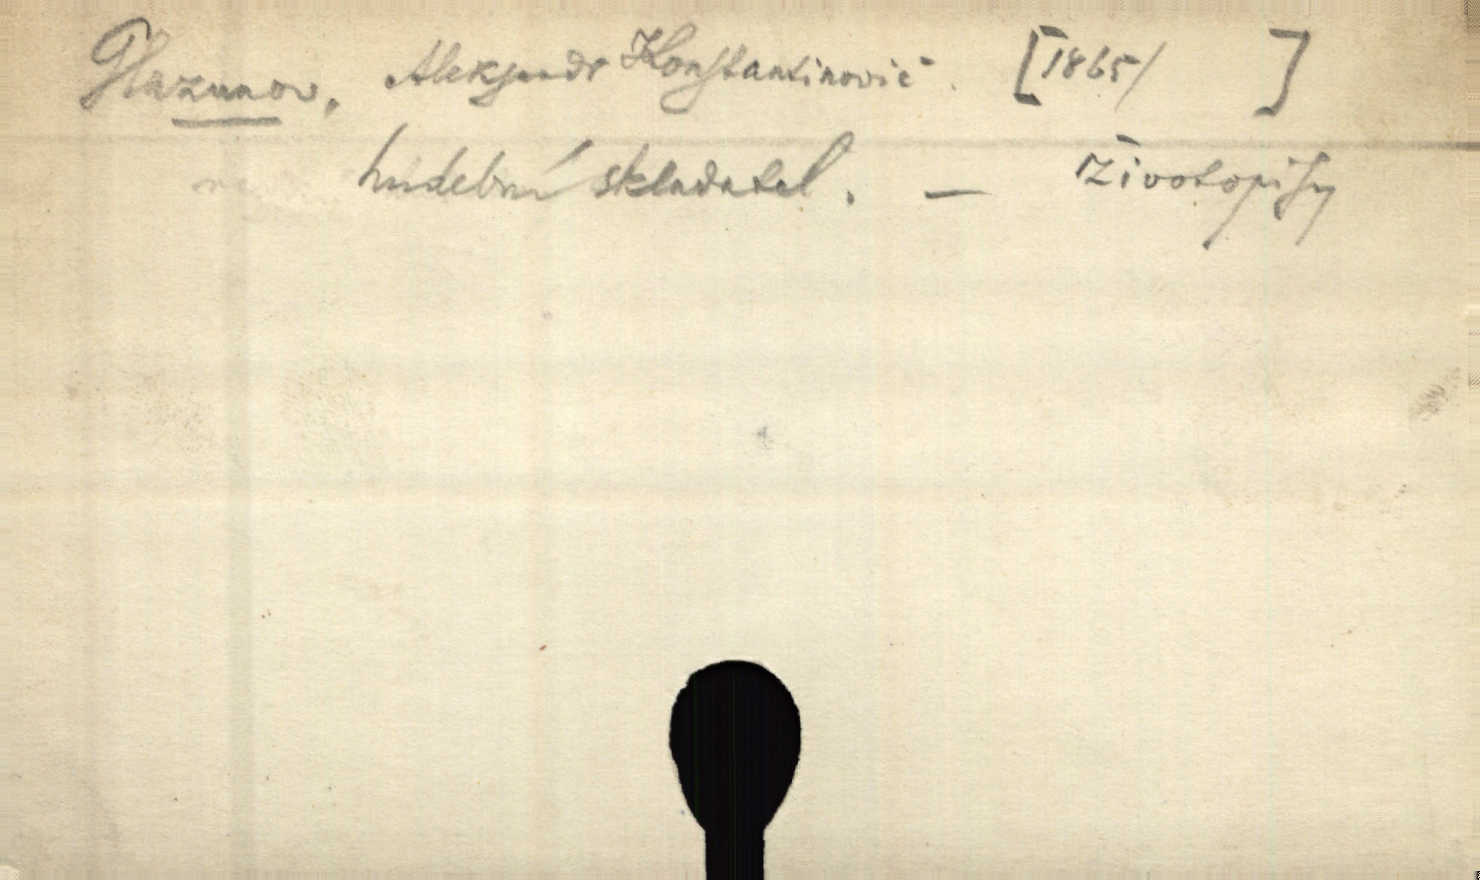 Glazunov, Aleksandr Konstantinovič. [1865/ ]
hudební skladatel. — Životopisy